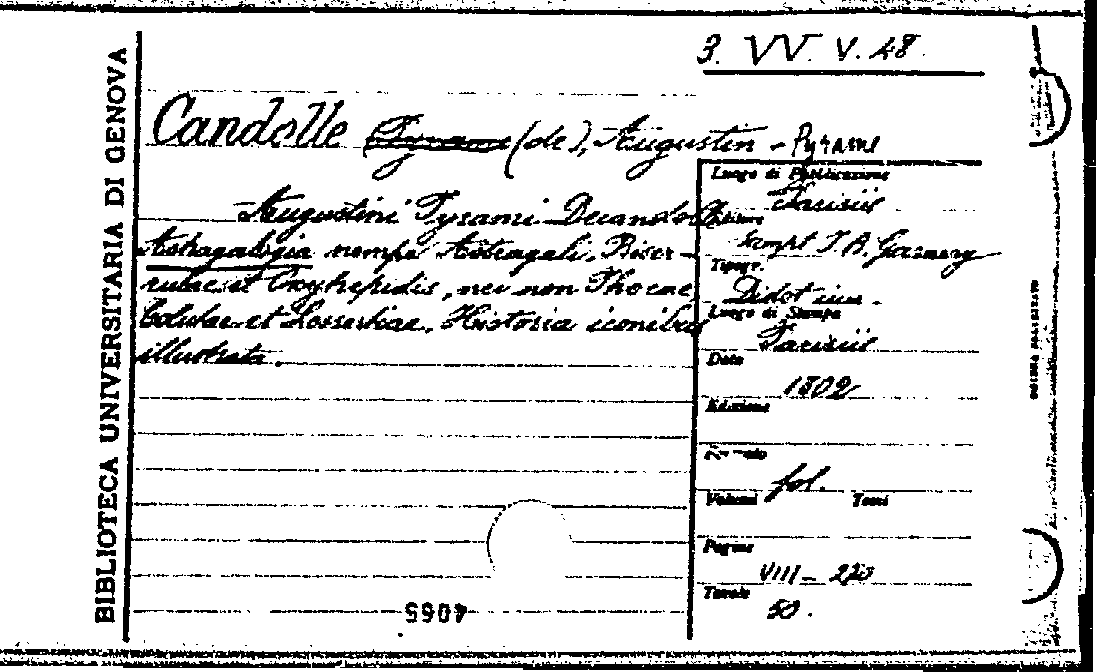 BIBLIOTECA UNIVERSITARIA DI GENOVA
3. VV. V. 48.
Candolle (de), Augustin - Pyrame
Augustini Pyrami Decandolle
Astragalogia nempe Astragali, Biser-
rulae et Oxytropidis, nec non Phacae,
Coluteae et Lessertiae, Historia iconibus
illustrata.
Luogo di Pubblicazione
Parisiis
Editore
Sumpt J. B. Garnery
Tipogr.
Didot iun.
Luogo di Stampa
Parisiis
Data
1802
Edizione
Formato
fol.
Volumi Tomi
Pagine
VIII - 220
Tavole
50.
4065